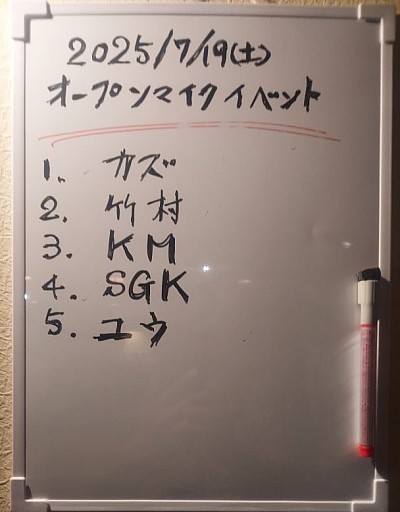 2025/7/19(土)
オープンマイクイベント
1. カズ
2. 竹村
3. KM
4. SGK
5. ユウ